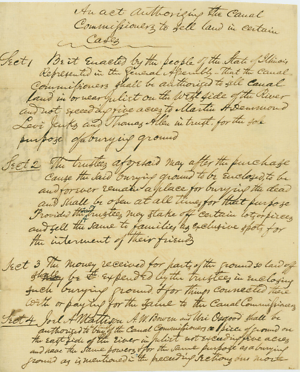 An act authorizing the Canal
Commissioners to sell land in certain
Cases
Sect 1 Be it enacted by the people of the State of Illinois
Represented in the General Assembly. that the Canal
Commissioners shall be authorized to sell Canal
land in or near Juliet on the West side of the River
and not exceeding five acres to Martin H Demmond
Levi Jenks and Thomas Allen in trust for the sole
purpose of a burying ground
Sect 2 The trustees aforesaid may after the purchase
cause the said burying ground to be enclosed, to be
and forever remain a place for burying the dead
and shall be open at all times for that purpose
Provided the trustees may stake of certain lots or pieces
and sell the same to families as exclusive spots, for
the interment of their friends
Sect 3 The money received for parts of the ground so laid off
shall be expended by the trustees in enclosing
such burying ground & for things connected there
with or paying for the same to the Canal Commissioners
Sect 4 Joel A Matteson A W Bowen and Uri Osgood shall be
authorized to buy of the Canal Commissioners a piece of ground on
the east side of the river in Juliet not exceeding five acres
and have the same powers of for the same purpose as a burying
ground as is mentioned in the preceding Sections